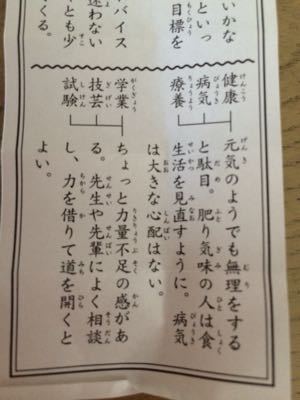 いかな
といっ
目標を
バイス
迷わない
くとも少
くる。
健康
病気
療養
元気のようでも無理をする
と駄目。肥り気味の人は食
生活を見直すように。病気
は大きな心配はない。
学業
技芸
試験
ちょっと力量不足の感があ
る。先生や先輩によく相談
し、力を借りて道を開くと
よい。